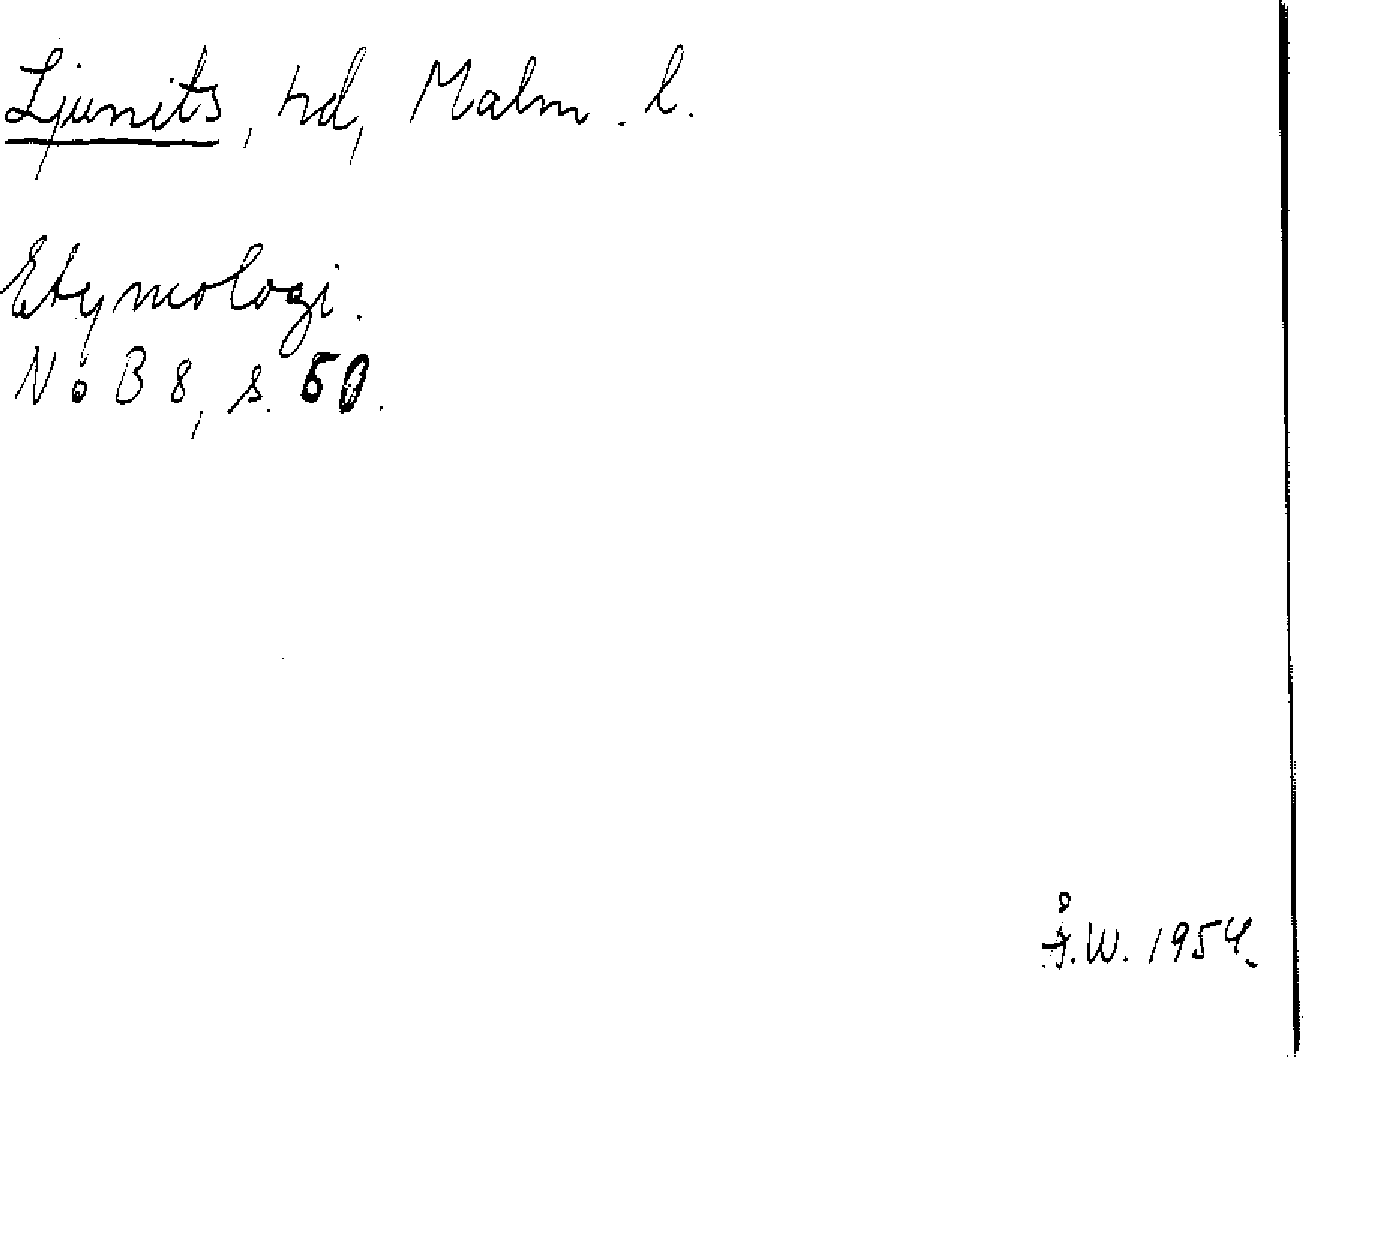 Ljunits, hd, Malm. l.
Etymologi.
NoB 8, s. 50.
Å.W. 1954.